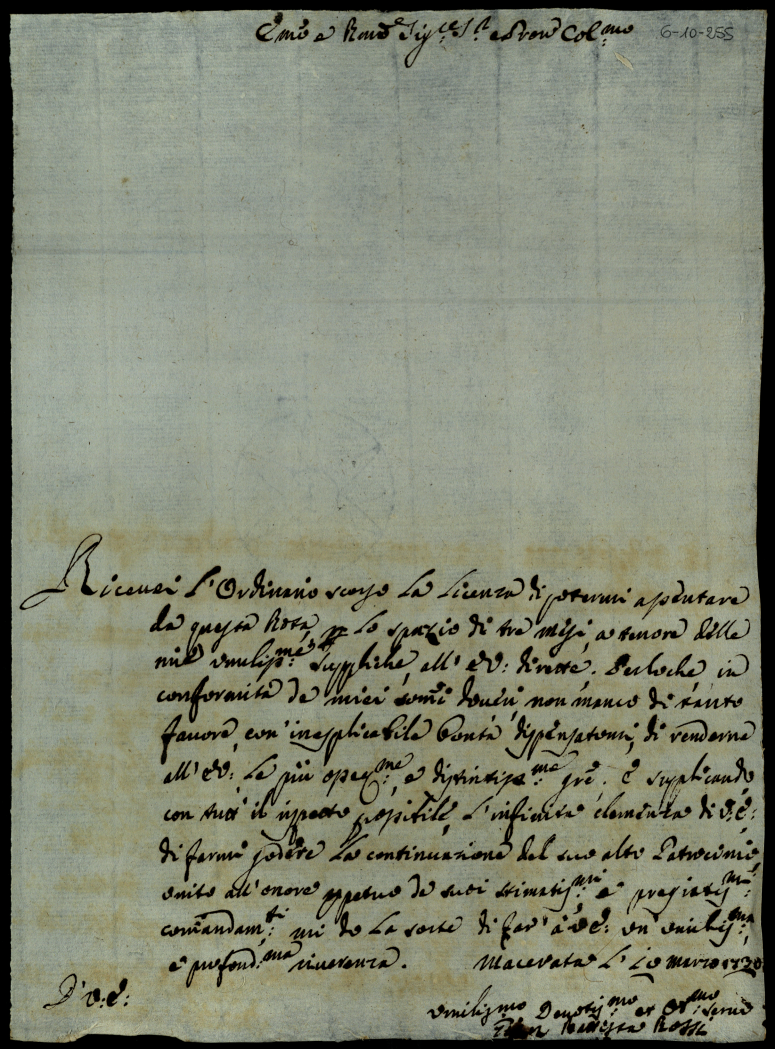 Emo e Rmo Sigre Sr e Pron Colmo 6-10-255
Riceuei l'Ordinario scorso la licenza di potermi assentare
da questa Rota p lo spazio di tre mesi, a tenore delle
mie umilisme suppliche all' E.V: dirette. Perloche in
conformità de miei somi doueri, non manco di tanto
fauore, con inesplicabile bontà dispensatomi, di renderne
all' E.V: le più osseqme, e distintissme gre. E supplicando
con tutt' il rispetto possibile l'infinita clemenza di V.E:
di farmi godere la continuazione del suo alto Patrocinio
unito all'onore ppetuo de suoi stimatismi e pregiatismi
comandamti: mi do la sorte di far' a V.E: un' umilisma
e profondma riuerenza. Macerata li 10 marzo 1730
D' V.E:
Umilismo Deuotismo et Obmo Serue
Battista Rossi